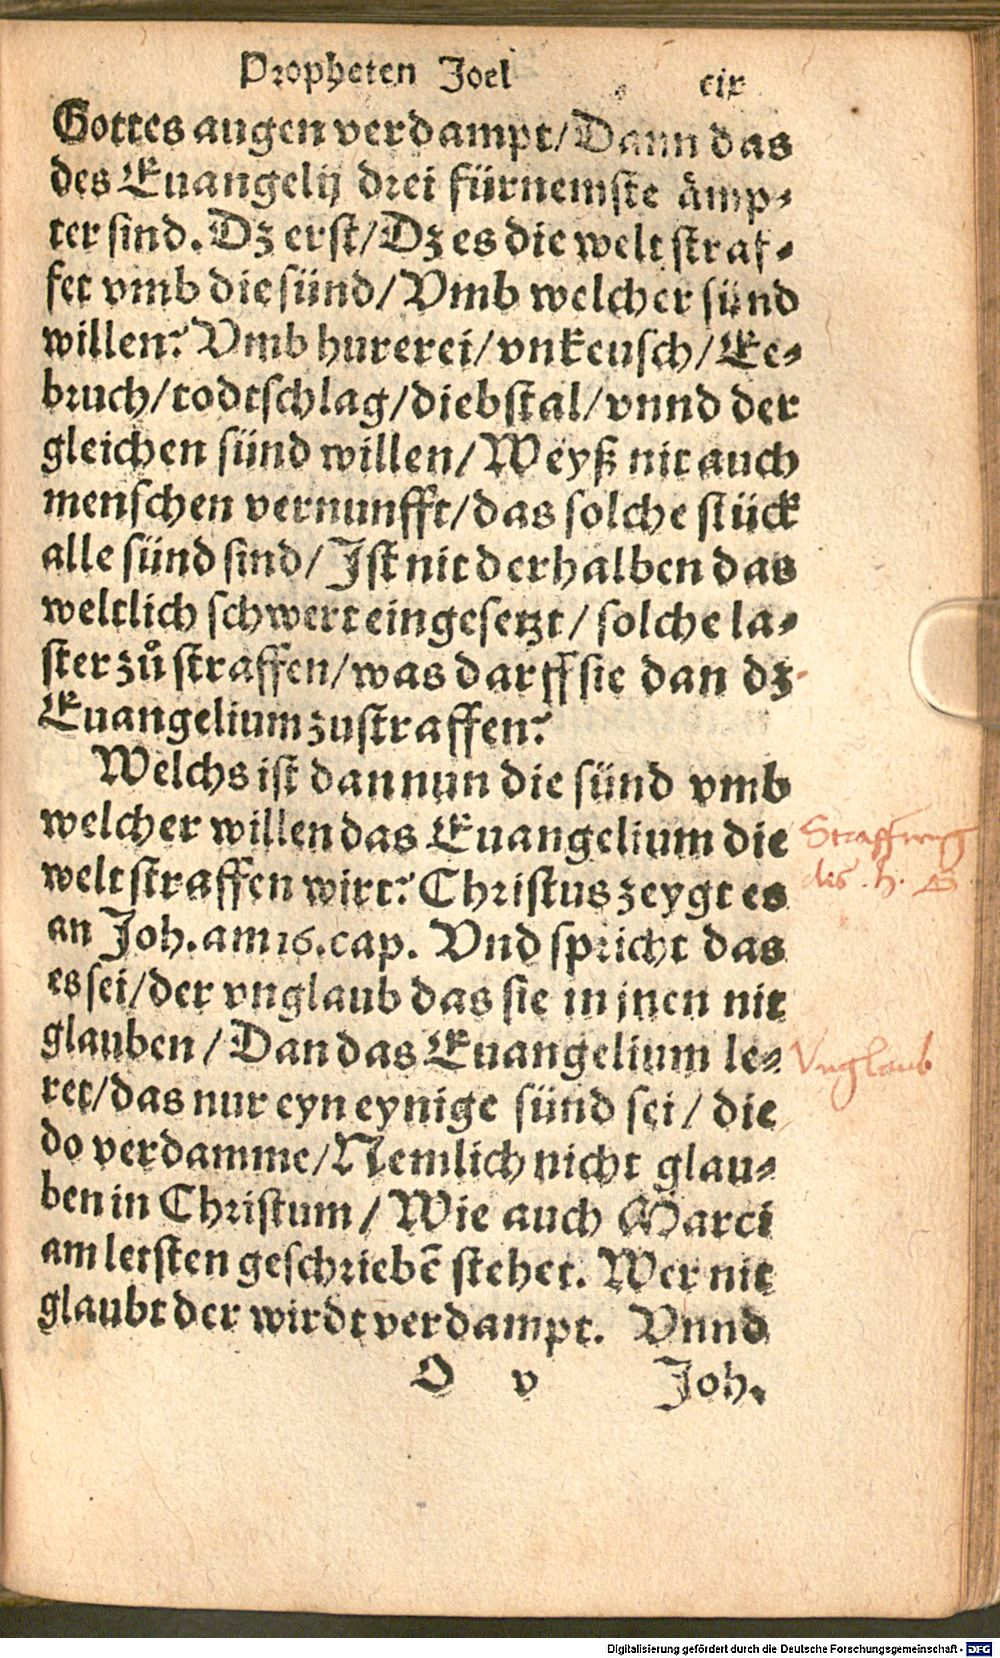 Propheten Joel cix
Gottes augen verdampt/ Dann das
des Euangelij drei fürnemste ämp⸗
ter sind. Dz erst/ Dz es die welt straf⸗
fet vmb die sünd/ Vmb welcher sünd
willen? Vmb hurerei/ vnkeusch/ Ee⸗
bruch/ todtschlag/ diebstal/ vnnd der
gleichen sünd willen/ Weyß nit auch
menschen vernunfft/ das solche stück
alle sünd sind/ Ist nit derhalben das
weltlich schwert eingesetzt/ solche la⸗
ster zů straffen/ was darff sie dan dz
Euangelium zustraffen?
Welchs ist dan nun die sünd vmb
welcher willen das Euangelium die
welt straffen wirt? Christus zeygt es
an Joh. am 16. cap. Vnd spricht das
es sei/ der vnglaub das sie in jnen nit
glauben/ Dan das Euangelium le⸗
ret/ das nur eyn eynige sünd sei/ die
do verdamme/ Nemlich nicht glau⸗
ben in Christum/ Wie auch Marci
am letsten geschriebē stehet. Wer nit
glaubt der wirdt verdampt. Vnnd
O v Joh.
Straffung
des h. G
Vnglaub
Digitalisierung gefördert durch die Deutsche Forschungsgemeinschaft - DFG